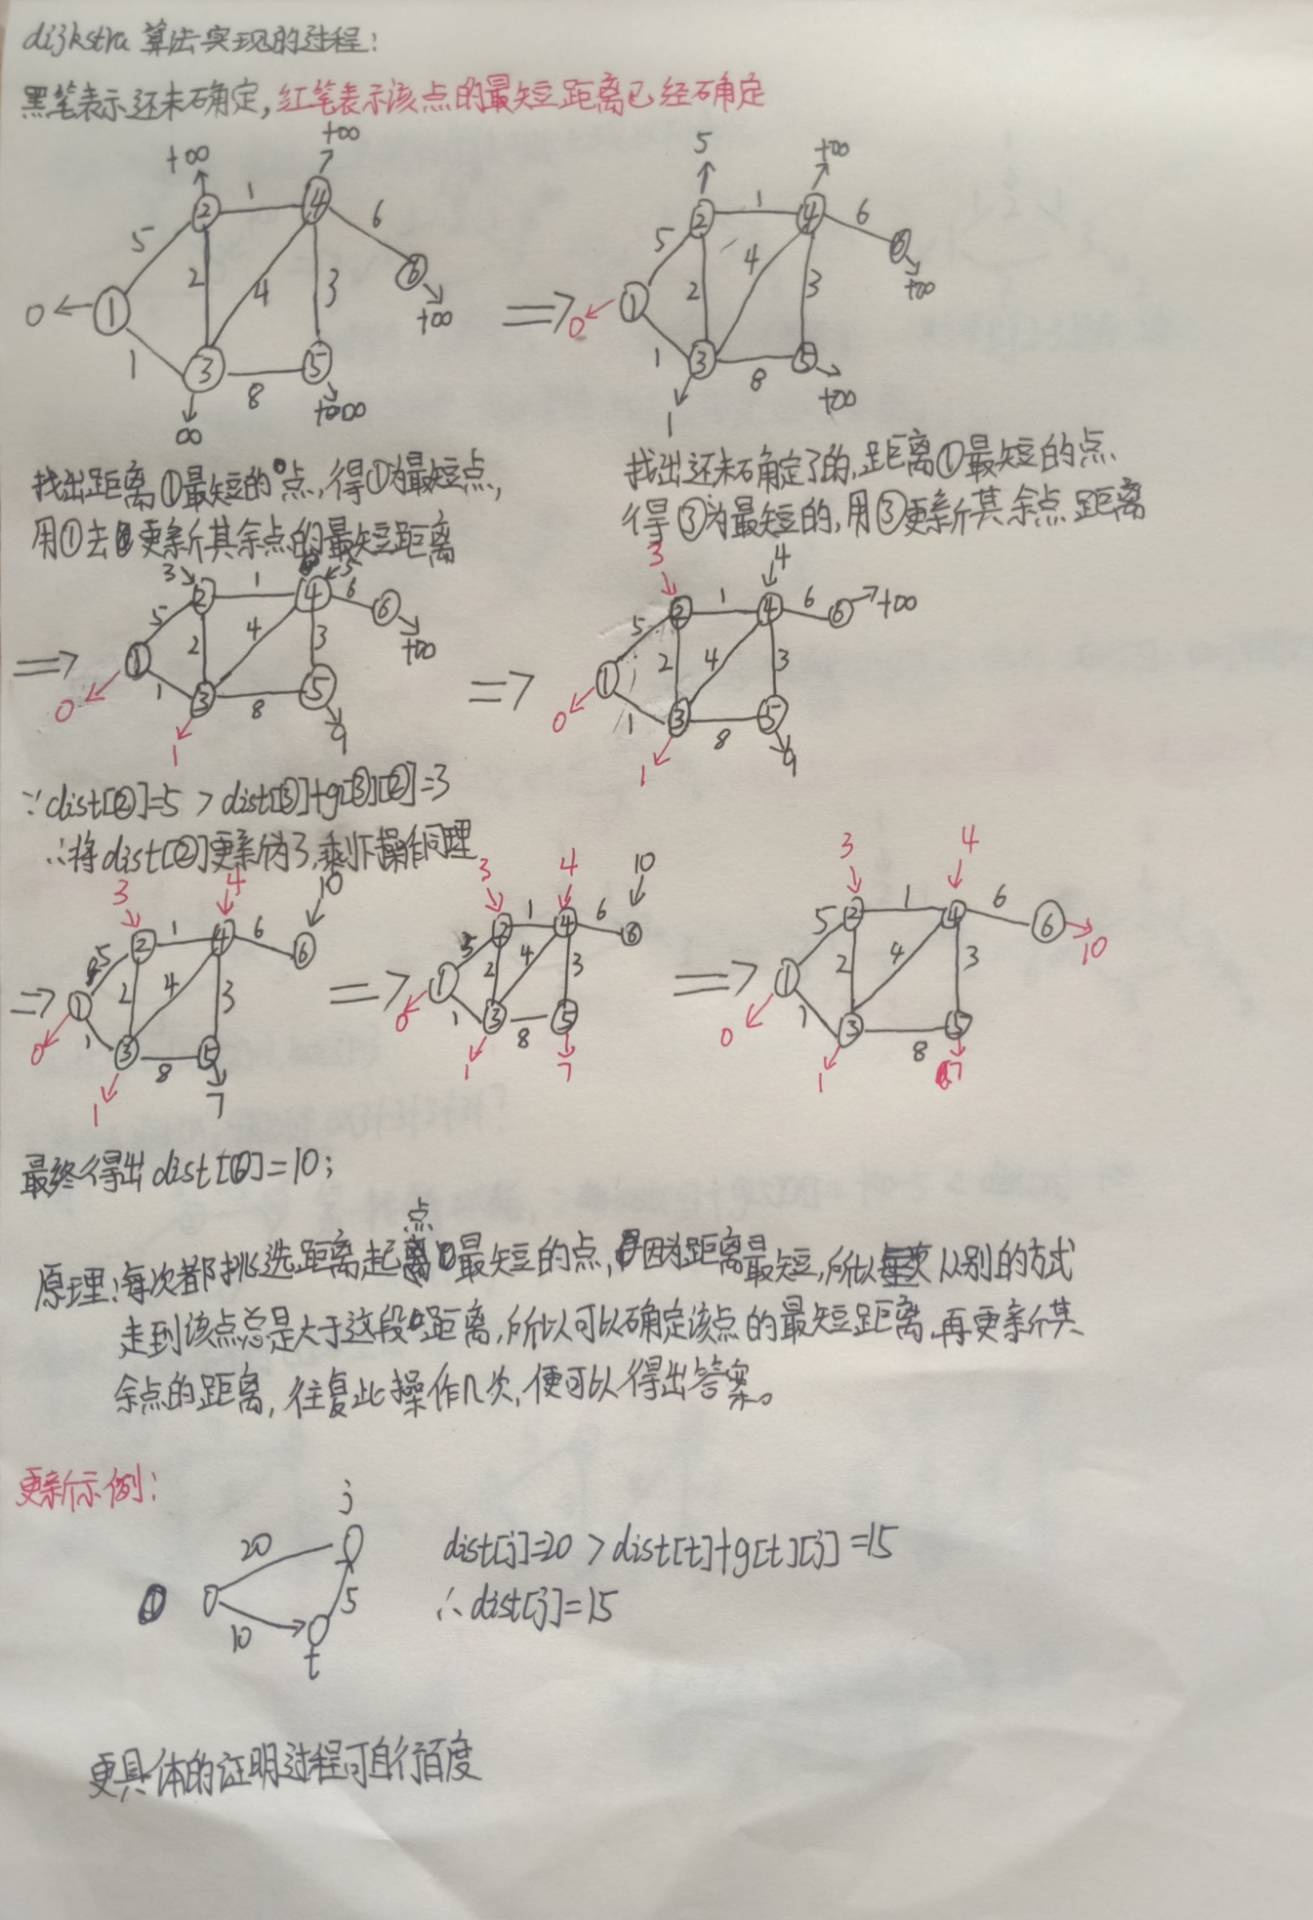 dijkstra 算法实现的过程:
黑笔表示还未确定,红笔表示该点的最短距离已经确定
+∞ +∞
② 1 ④ 6
5 2 4 3 ⑥
0 ① +∞
1 ③ 8 ⑤
∞ +∞
5 +∞
② 1 ④ 6
5 2 4 3 ⑥
0 ① +∞
1 ③ 8 ⑤
1 +∞
找出距离①最短的点,得①为最短点,
用①去更新其余点的最短距离
找出还未确定了的,距离①最短的点
得③为最短的,用③更新其余点距离
3 5
② 1 ④ 6 ⑥
5 2 4 3 +∞
⇒ ①
0 1 ③ 8 ⑤
1 9
3 4
② 1 ④ 6 ⑥ +∞
5 2 4 3
⇒ ①
0 1 ③ 8 ⑤
1 9
∵dist[②]=5 > dist[③]+g[③][②]=3
∴将dist[②]更新为3,剩下操作同理
3 4 10
② 1 ④ 6 ⑥
5 2 4 3
⇒ ①
0 1 ③ 8 ⑤
1 7
3 4 10
② 1 ④ 6 ⑥
5 2 4 3
⇒ ①
0 1 ③ 8 ⑤
1 7
3 4
② 1 ④ 6 ⑥ 10
5 2 4 3
⇒ ①
0 1 ③ 8 ⑤
1 7
最终得出dist[⑥]=10;
原理:每次都挑选距离起点最短的点,因为距离最短,所以从别的方式
走到该点总是大于这段距离,所以可以确定该点的最短距离,再更新其
余点的距离,往复此操作几次,便可以得出答案。
更新示例:
j
20
5
10
t
dist[j]=20 > dist[t]+g[t][j]=15
∴dist[j]=15
更具体的证明过程可自行百度